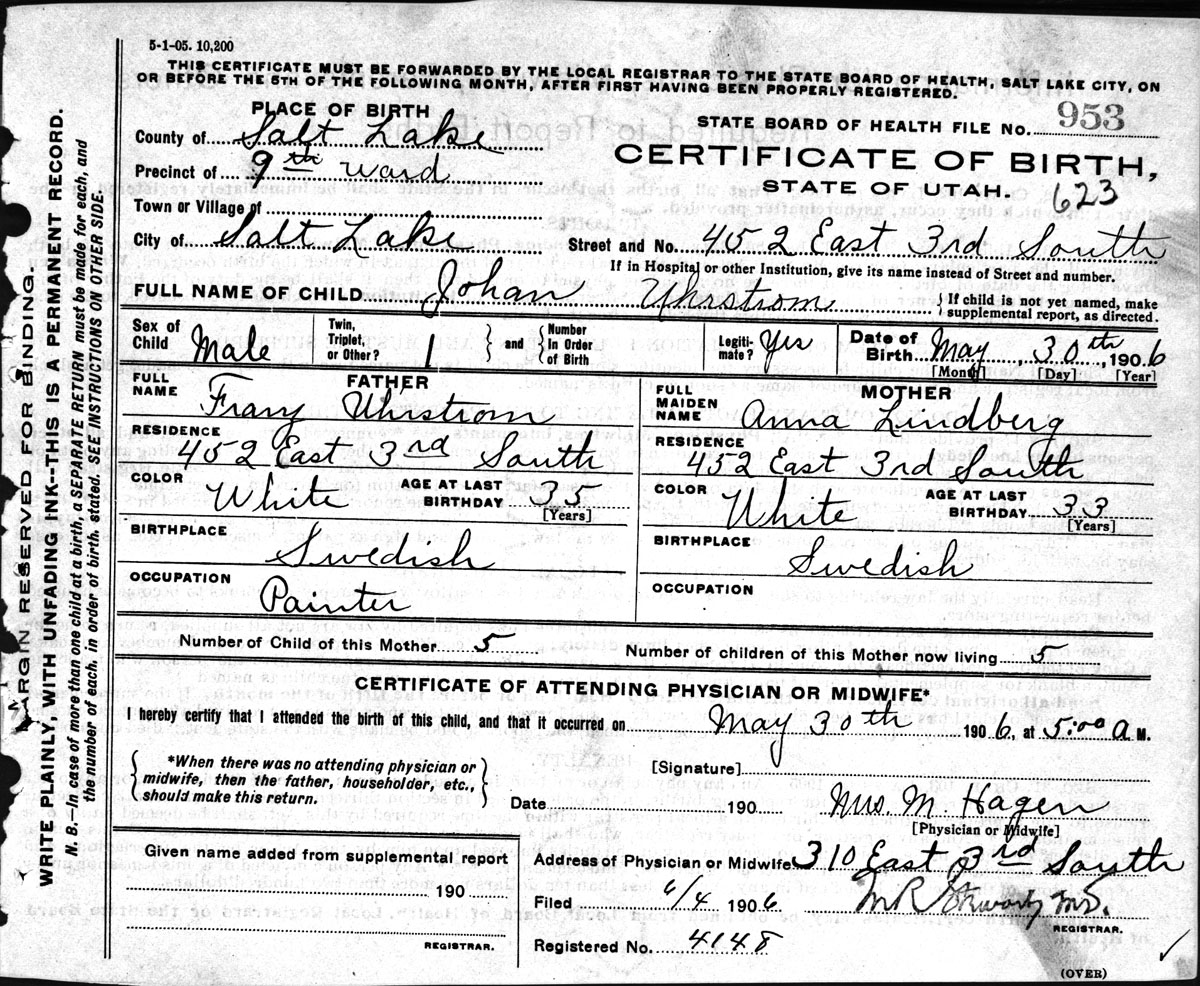 5-1-05. 10,200
THIS CERTIFICATE MUST BE FORWARDED BY THE LOCAL REGISTRAR TO THE STATE BOARD OF HEALTH, SALT LAKE CITY, ON
OR BEFORE THE 5TH OF THE FOLLOWING MONTH, AFTER FIRST HAVING BEEN PROPERLY REGISTERED.
PLACE OF BIRTH
County of Salt Lake
Precinct of 9th Ward
Town or Village of
City of Salt Lake
STATE BOARD OF HEALTH FILE NO. 953
CERTIFICATE OF BIRTH,
STATE OF UTAH.
623
Street and No. 452 East 3rd South
If in Hospital or other Institution, give its name instead of Street and number.
FULL NAME OF CHILD Johan Uhrstrom
If child is not yet named, make
supplemental report, as directed.
Sex of Child Male
Twin, Triplet, or Other? 1
and
Number In Order of Birth
Legiti-mate? Yes
Date of Birth May 30th, 1906
[Month] [Day] [Year]
FATHER
FULL NAME Franz Uhrstrom
RESIDENCE
452 East 3rd South
COLOR White
AGE AT LAST BIRTHDAY 35
[Years]
BIRTHPLACE
Swedish
OCCUPATION
Painter
MOTHER
FULL MAIDEN NAME Anna Lindberg
RESIDENCE
452 East 3rd South
COLOR White
AGE AT LAST BIRTHDAY 33
[Years]
BIRTHPLACE
Swedish
OCCUPATION
Number of Child of this Mother 5
Number of children of this Mother now living 5
CERTIFICATE OF ATTENDING PHYSICIAN OR MIDWIFE*
I hereby certify that I attended the birth of this child, and that it occurred on May 30th 1906, at 5:00 A M.
*When there was no attending physician or
midwife, then the father, householder, etc.,
should make this return.
[Signature]
Date 190
Mrs. M. Hagen
[Physician or Midwife]
Given name added from supplemental report
190
REGISTRAR.
Address of Physician or Midwife 310 East 3rd South
Filed 6/4 1906
M R MD.
REGISTRAR.
Registered No. 4148
(OVER)
MARGIN RESERVED FOR BINDING.
WRITE PLAINLY, WITH UNFADING INK--THIS IS A PERMANENT RECORD.
N. B.--In case of more than one child at a birth, a SEPARATE RETURN must be made for each, and
the number of each, in order of birth, stated. SEE INSTRUCTIONS ON OTHER SIDE.